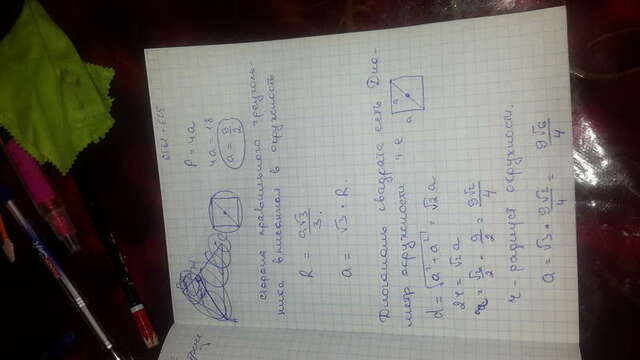 P = 4a
4a = 18
a = 9/2
сторона правильного треуголь-
ника вписанного в окружность
R = a√3/3.
a = √3 · R
Диагональ квадрата есть Диа-
метр окружности
d = √a² + a² = √2 a
2r = √2 a
r = √2/2 · 9/2 = 9√2/4
r - радиус окружности.
a = √3 · 9√2/4 = 9√6/4
a
a